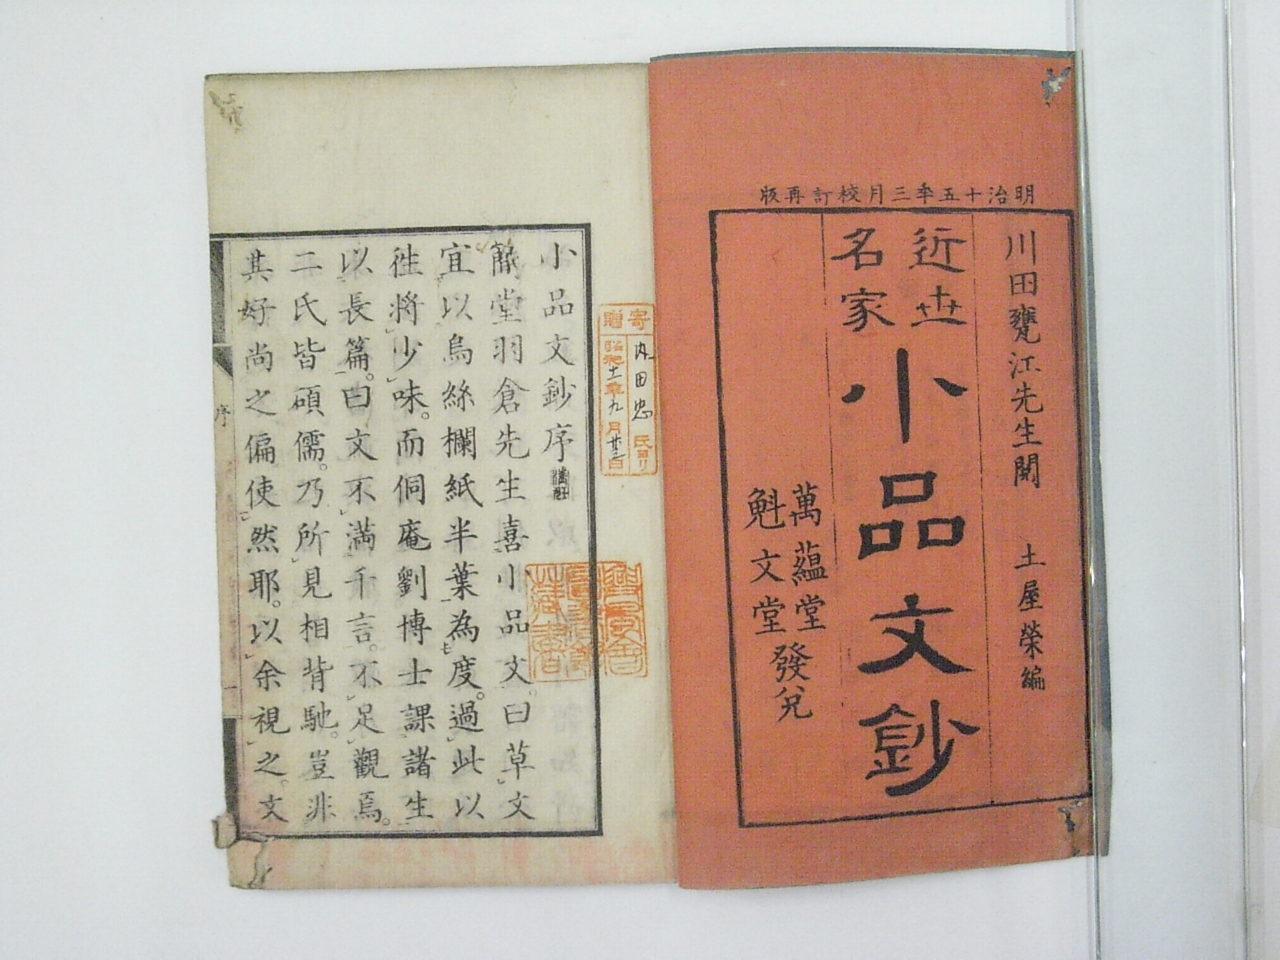 明治十五年三月校訂再版
川田甕江先生閲　土屋榮編
近世名家
小品文鈔
萬蘊堂
魁文堂
發兌
寄贈
内田忠氏ヨリ
昭和十一年九月廿三日
小品文鈔序
簡堂羽倉先生喜小品文。曰草文
宜以烏絲欄紙半葉為度。過此以
徃將少味。而侗庵劉博士課諸生
以長篇。曰文不滿千言。不足觀焉。
二氏皆碩儒。乃所見相背馳。豈非
其好尚之偏使然耶。以余視之。文
序